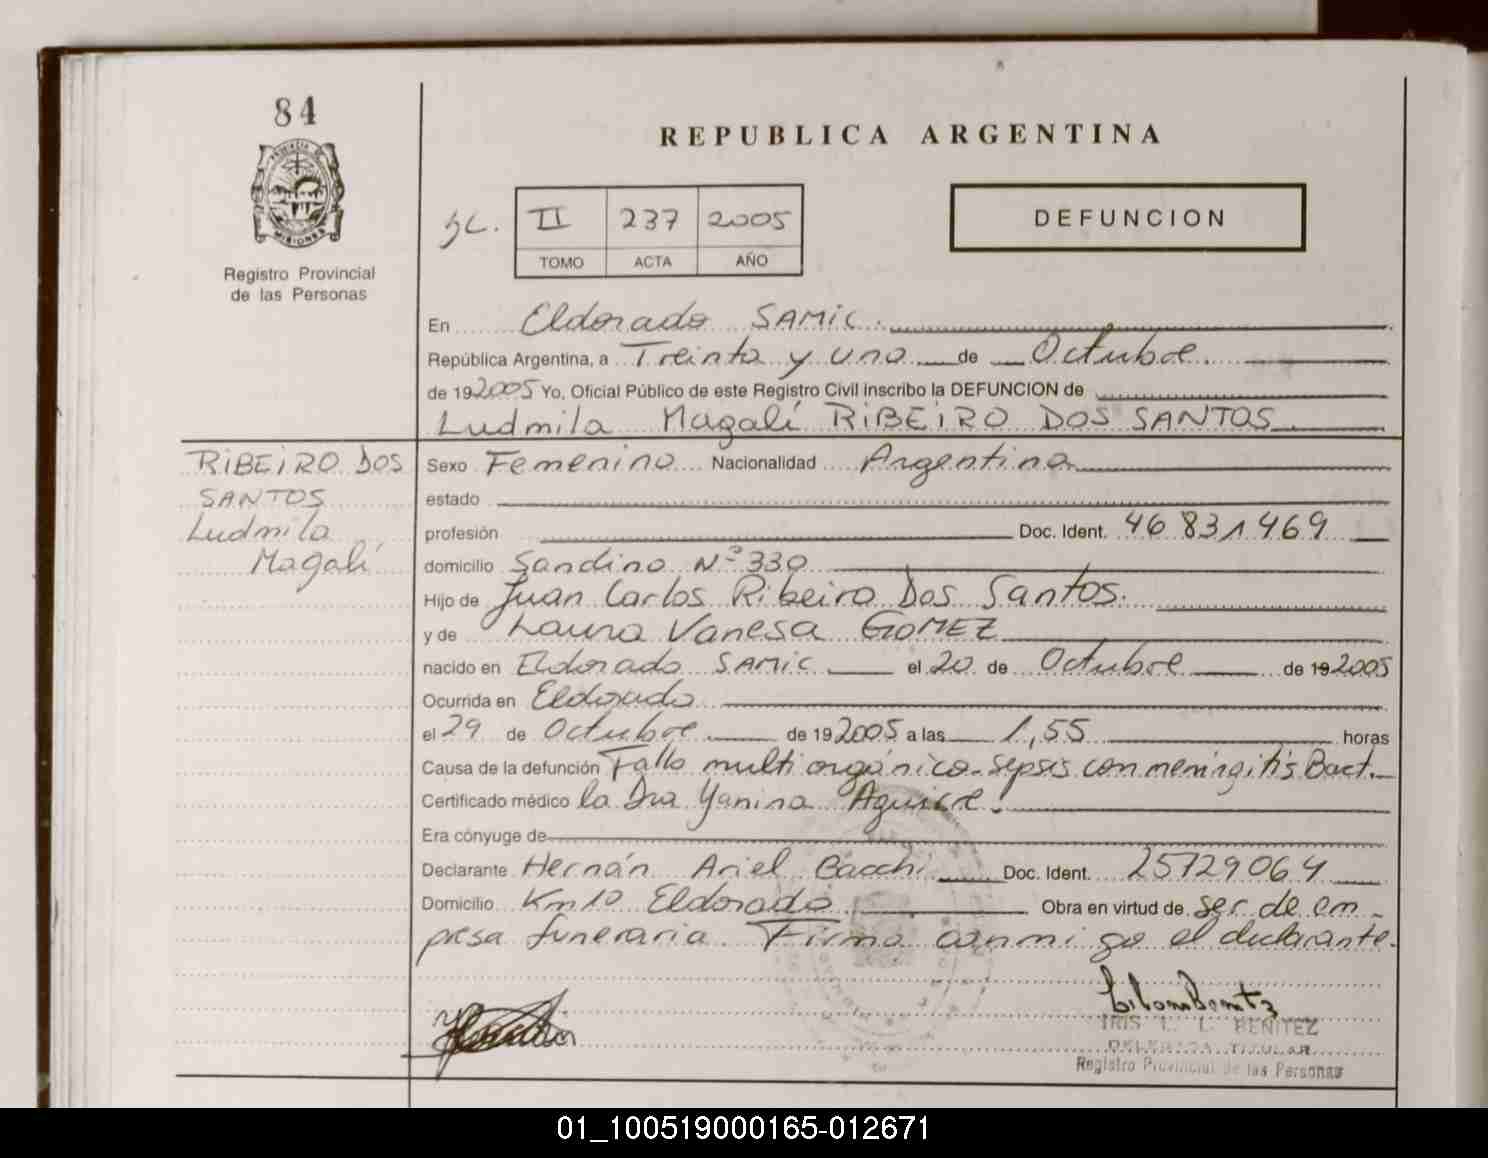 84
REPUBLICA ARGENTINA
II 237 2005
TOMO ACTA AÑO
DEFUNCION
PROVINCIA DE
MISIONES
Registro Provincial
de las Personas
En Eldorado SAMIC.
República Argentina, a Treinta y uno de Octubre
de 192005 Yo, Oficial Público de este Registro Civil inscribo la DEFUNCION de
Ludmila Magalí RIBEIRO DOS SANTOS
RIBEIRO DOS
SANTOS
Ludmila
Magalí
Sexo Femenino Nacionalidad Argentina
estado
profesión Doc. Ident. 46 831 469
domicilio Sandino Nº 330
Hijo de Juan Carlos Ribeiro Dos Santos.
y de Laura Vanesa GOMEZ
nacido en Eldorado SAMIC el 20 de Octubre de 192005
Ocurrida en Eldorado
el 29 de Octubre de 192005 a las 1,55 horas
Causa de la defunción Fallo multiorgánico-sepsis con meningitis Bact.
Certificado médico la Dra Yanina Aguirre.
Era cónyuge de
Declarante Hernán Ariel Bacchi Doc. Ident. 25729064
Domicilio Km 10 Eldorado Obra en virtud de ser de em-
presa funeraria. Firma conmigo el declarante.
IRIS L. L. BENITEZ
DELEGADA TITULAR
Registro Provincial de las Personas
01_100519000165-012671